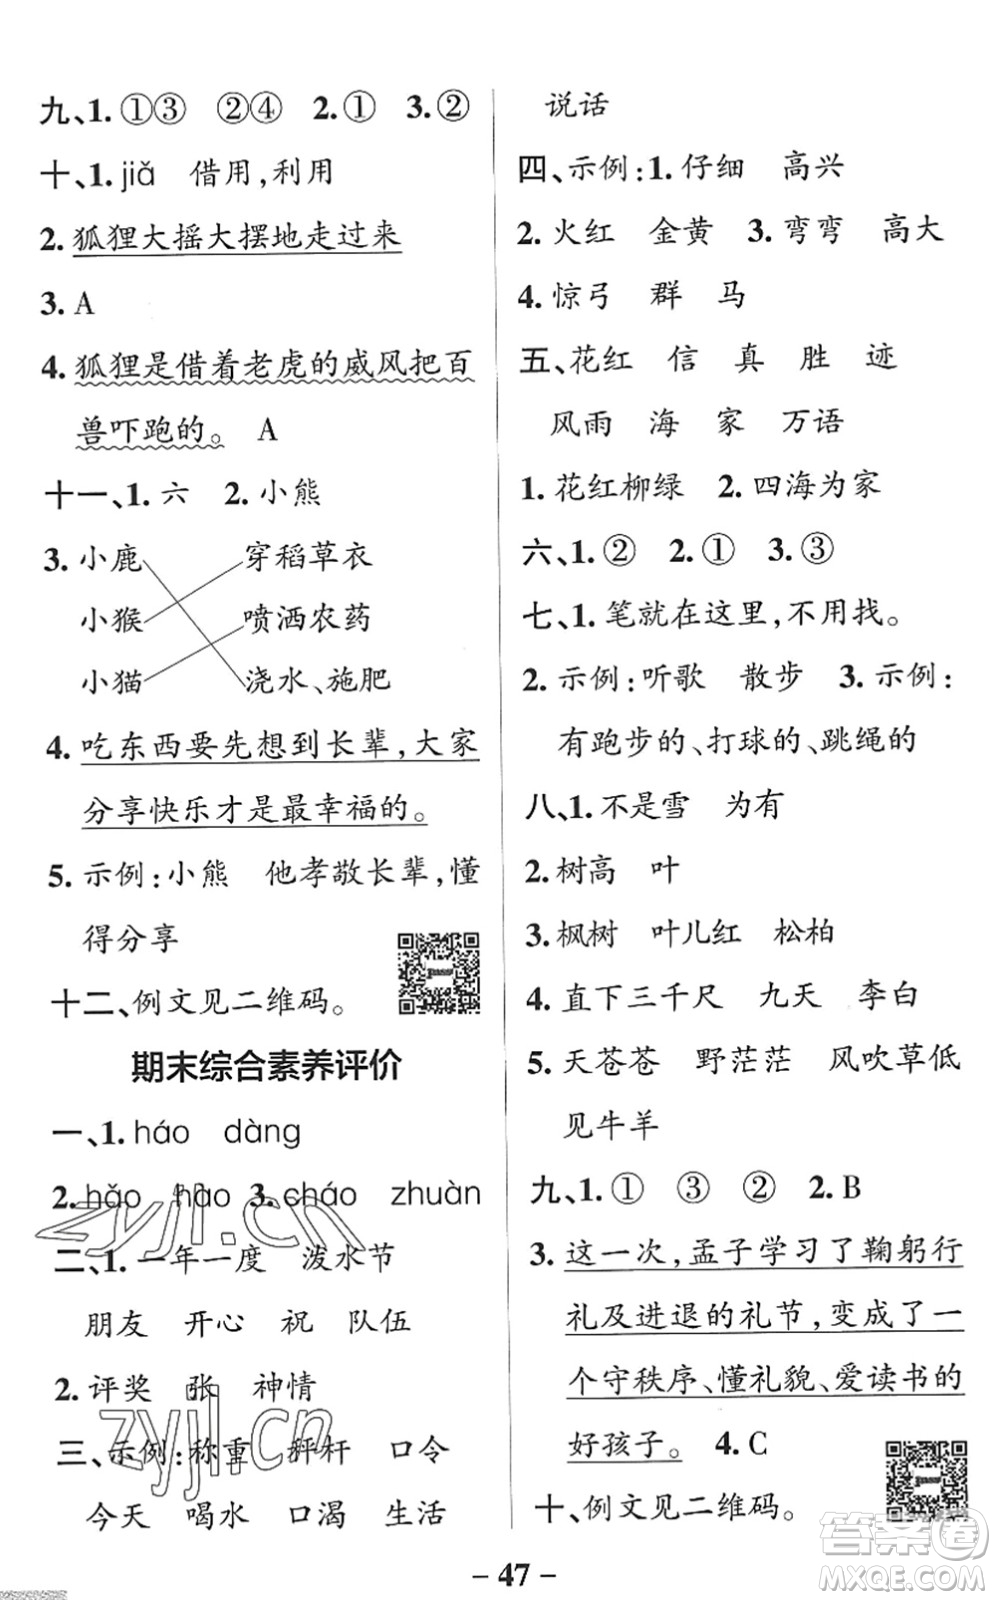 九、1.①③ ②④ 2.① 3.②
十、1.jiǎ 借用,利用
2.狐狸大摇大摆地走过来
3.A
4.狐狸是借着老虎的威风把百
兽吓跑的。 A
十一、1.六 2.小熊
3.小鹿 穿稻草衣
小猴 喷洒农药
小猫 浇水、施肥
4.吃东西要先想到长辈,大家
分享快乐才是最幸福的。
5.示例:小熊 他孝敬长辈,懂
得分享
十二、例文见二维码。
期末综合素养评价
一、1.háo dàng
2.hǎo hào 3.cháo zhuàn
二、1.一年一度 泼水节
朋友 开心 祝 队伍
2.评奖 张 神情
三、示例:称重 秤杆 口令
今天 喝水 口渴 生活
说话
四、示例:1.仔细 高兴
2.火红 金黄 3.弯弯 高大
4.惊弓 群 马
五、花红 信 真 胜 迹
风雨 海 家 万语
1.花红柳绿 2.四海为家
六、1.② 2.① 3.③
七、1.笔就在这里,不用找。
2.示例:听歌 散步 3.示例:
有跑步的、打球的、跳绳的
八、1.不是雪 为有
2.树高 叶
3.枫树 叶儿红 松柏
4.直下三千尺 九天 李白
5.天苍苍 野茫茫 风吹草低
见牛羊
九、1.① ③ ② 2.B
3.这一次,孟子学习了鞠躬行
礼及进退的礼节,变成了一
个守秩序、懂礼貌、爱读书的
好孩子。 4.C
十、例文见二维码。
- 47 -
zyjl.cn
zyjl.cn
答案圈
MXQE.COM